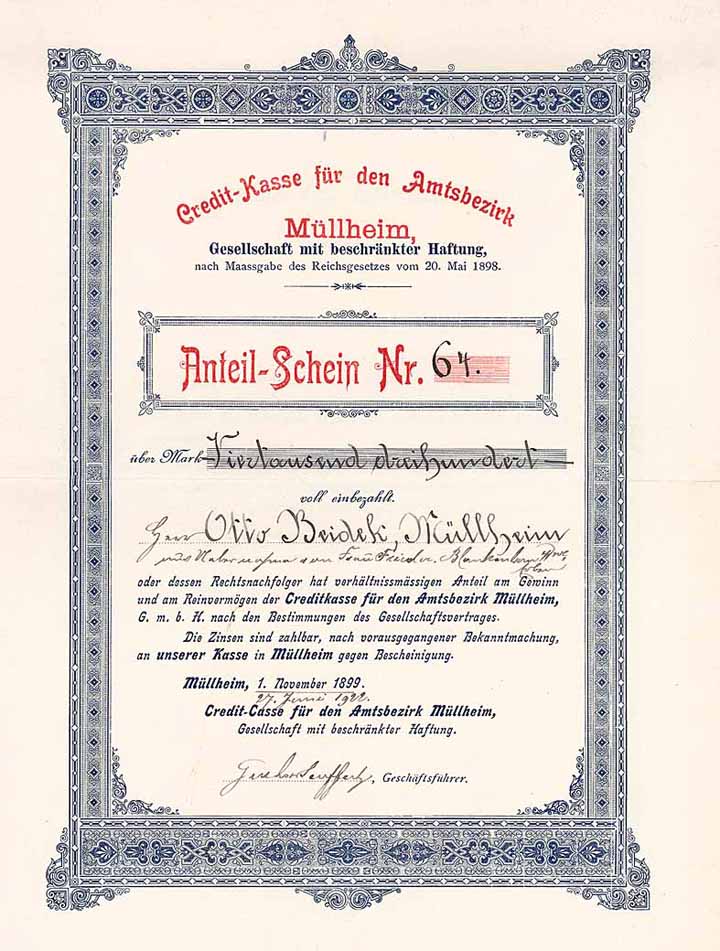 Credit-Kasse für den Amtsbezirk
Müllheim,
Gesellschaft mit beschränkter Haftung,
nach Maassgabe des Reichsgesetzes vom 20. Mai 1898.
Anteil-Schein Nr. 64.
über Mark Viertausend dreihundert
voll einbezahlt.
Herr Otto Beidek, Müllheim
von Frau Frieder. Blankenhorn
oder dessen Rechtsnachfolger hat verhältnissmässigen Anteil am Gewinn
und am Reinvermögen der Creditkasse für den Amtsbezirk Müllheim,
G. m. b. H. nach den Bestimmungen des Gesellschaftsvertrages.
Die Zinsen sind zahlbar, nach vorausgegangener Bekanntmachung,
an unserer Kasse in Müllheim gegen Bescheinigung.
Müllheim, 1. November 1899.
27. Juni 1922.
Credit-Casse für den Amtsbezirk Müllheim,
Gesellschaft mit beschränkter Haftung.
, Geschäftsführer.